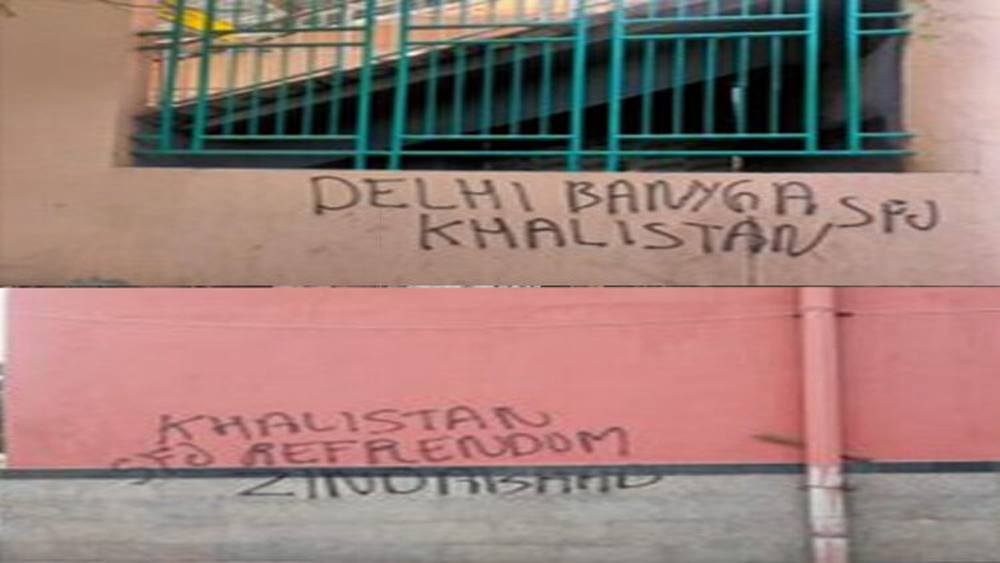 DELHI BANYGA SFJ
KHALISTAN
KHALISTAN
SFJ REFRENDOM
ZINDABAAD